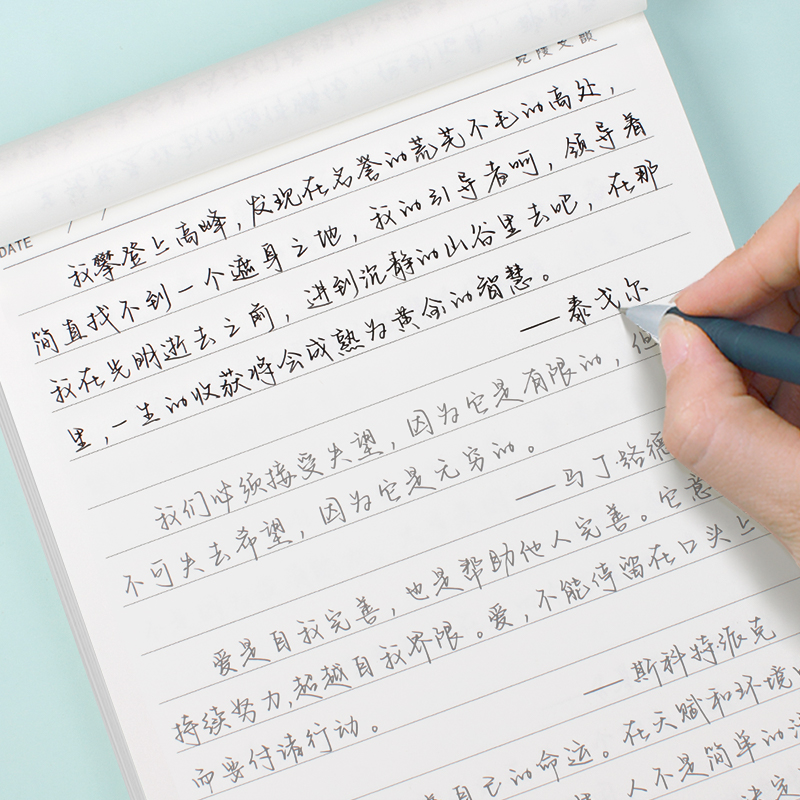 DATE / /
我攀登上高峰，发现在名誉的荒芜不毛的高处，
简直找不到一个遮身之地，我的引导者啊，领导着
我在光明逝去之前，进到沉静的山谷里去吧，在那
里，一生的收获将会成熟为黄金的智慧。
——泰戈尔
我们必须接受失望，因为它是有限的，但
不可失去希望，因为它是无穷的。
——马丁路德
爱是自我完善，也是帮助他人完善。它意
持续努力，超越自我界限。爱，不能停留在口头上
而要付诸行动。
——斯科特派克
是自己的命运。在天赋和环境
人不是简单的
决定